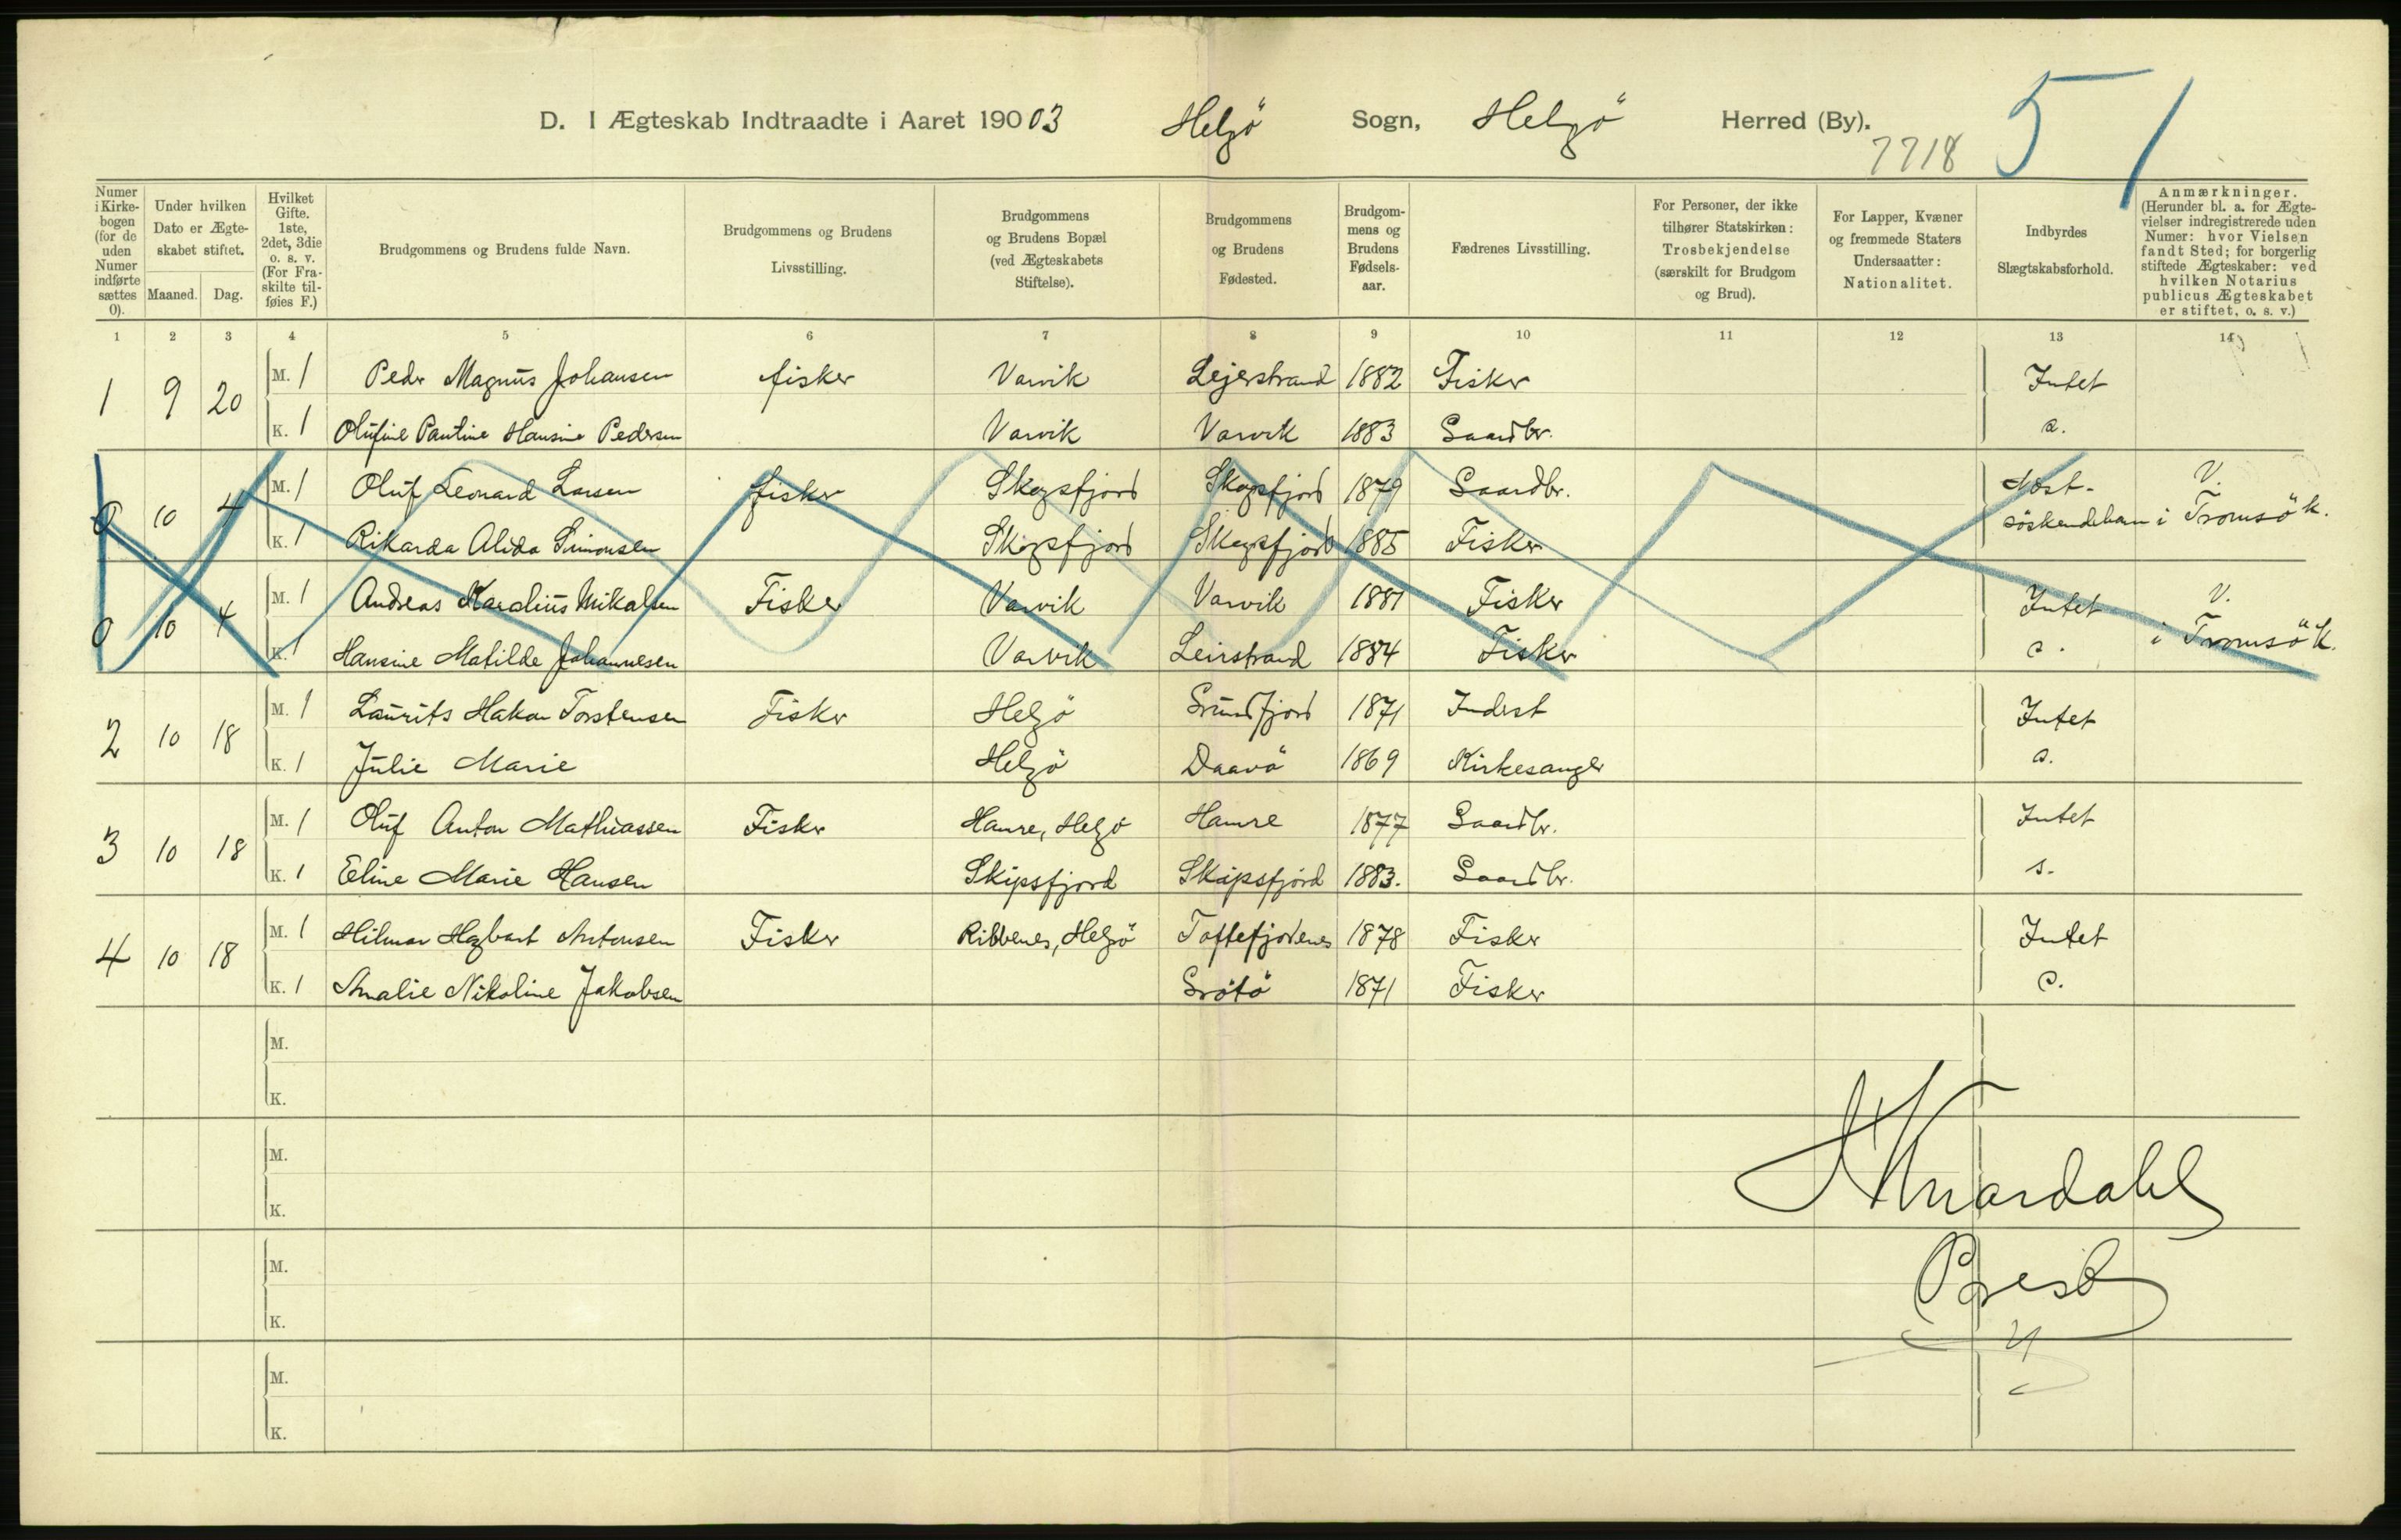 D. I Ægteskab Indtraadte i Aaret 190 03 Helgö Sogn, Helgö Herred (By).
7718 51
Numer i Kirkebogen (for de uden Numer indførte sættes 0).
Under hvilken Dato er Ægteskabet stiftet.
Maaned. Dag.
Hvilket Gifte. 1ste, 2det, 3die o. s. v. (For Fraskilte tilføies F.)
Brudgommens og Brudens fulde Navn.
Brudgommens og Brudens Livsstilling.
Brudgommens og Brudens Bopæl (ved Ægteskabets Stiftelse).
Brudgommens og Brudens Fødested.
Brudgommens og Brudens Fødselsaar.
Fædrenes Livsstilling.
For Personer, der ikke tilhører Statskirken: Trosbekjendelse (særskilt for Brudgom og Brud).
For Lapper, Kvæner og fremmede Staters Undersaatter: Nationalitet.
Indbyrdes Slægtskabsforhold.
Anmærkninger. (Herunder bl. a. for Ægtevielser indregistrerede uden Numer: hvor Vielsen fandt Sted; for borgerlig stiftede Ægteskaber: ved hvilken Notarius publicus Ægteskabet er stiftet, o. s. v.)
1 2 3 4 5 6 7 8 9 10 11 12 13 14
1 9 20 M. 1 Peder Magnus Johansen fisker Varvik Lejerstrand 1882 Fisker Intet
K. 1 Olufine Pauline Hansine Pedersen Varvik Varvik 1883 Gaardbr. a.
0 10 4 M. 1 Oluf Leonard Larsen fisker Skogsfjord Skogsfjord 1879 Gaardbr. Næst- V.
K. 1 Rikarda Alida Simonsen Skogsfjord Skogsfjord 1885 Fisker söskendebarn i Tromsö k.
0 10 4 M. 1 Andreas Karolius Mikalsen Fisker Varvik Varvik 1881 Fisker Intet V.
K. 1 Hansine Matilde Johannesen Varvik Leirstrand 1884 Fisker i Tromsö k.
2 10 18 M. 1 Laurits Hakon Torstensen Fisker Helgö Grundfjord 1871 Inderst Intet
K. 1 Julie Marie Helgö Daavö 1869 Kirkesanger a.
3 10 18 M. 1 Oluf Anton Mathiassen Fisker Hamre, Helgö Hamre 1877 Gaardbr. Intet
K. 1 Eline Marie Hansen Skipsfjord Skipsfjord 1883. Gaardbr. s.
4 10 18 M. 1 Hilmar Hagbart Antonsen Fisker Ribbenes, Helgö Toftefjordenes 1878 Fisker Intet
K. 1 Amalie Nikoline Jakobsen Grötö 1871 Fisker
M.
K.
M.
K.
M.
K.
M.
K.
Prest